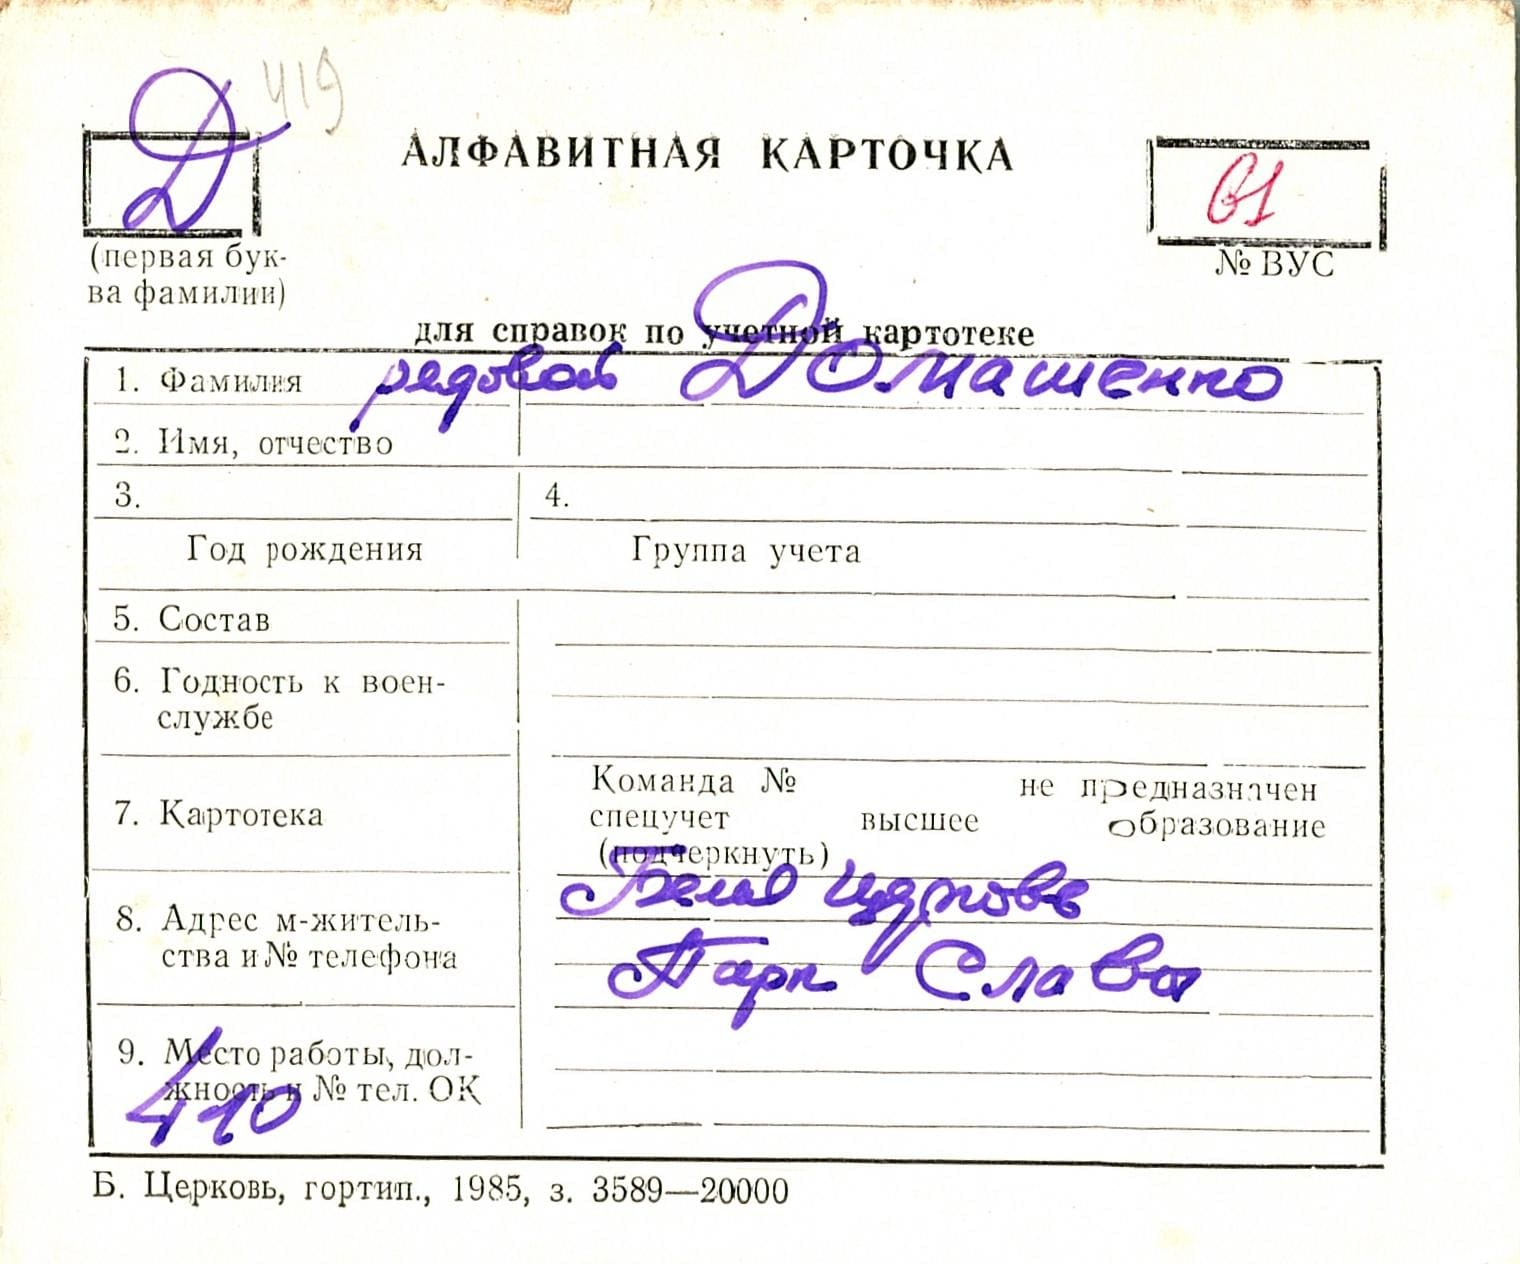 419
Д
АЛФАВИТНАЯ КАРТОЧКА
(первая бук-
ва фамилии)
№ ВУС
для справок по учетной картотеке
1. Фамилия рядовой Домашенко
2. Имя, отчество
3. 4.
Год рождения Группа учета
5. Состав
6. Годность к воен-
службе
7. Картотека
Команда № не предназначен
спецучет высшее образование
(подчеркнуть)
8. Адрес м-житель-
ства и № телефона
Біла Церковь
Парк Славы
9. Место работы, дол-
жность и № тел. ОК
410
Б. Церковь, гортип., 1985, з. 3589—20000